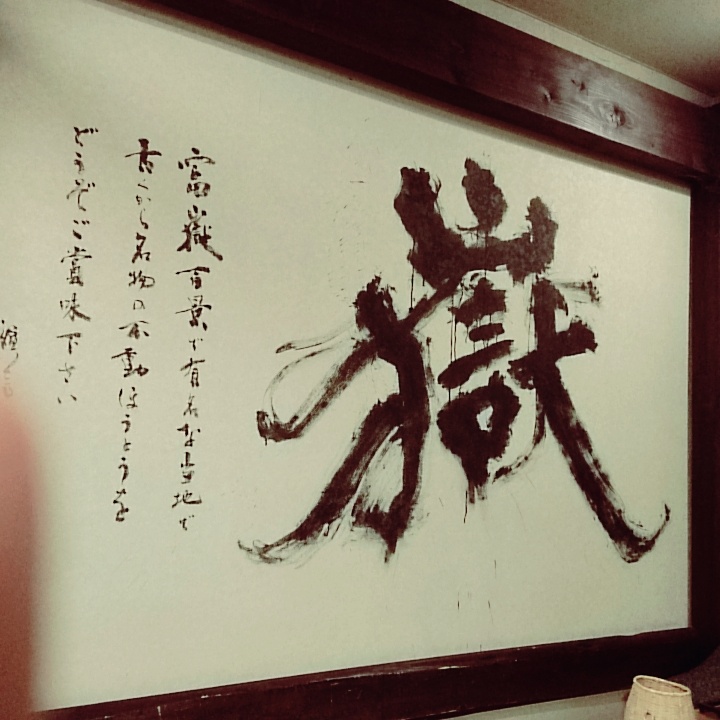 嶽
富嶽百景で有名な当地で
古くから名物の不動ほうとうを
どうぞご賞味下さい